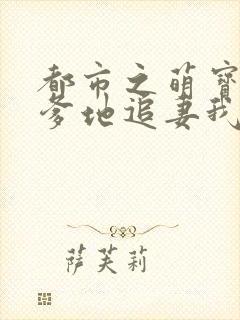 都市之萌宝
爹地追妻我
萨芙莉